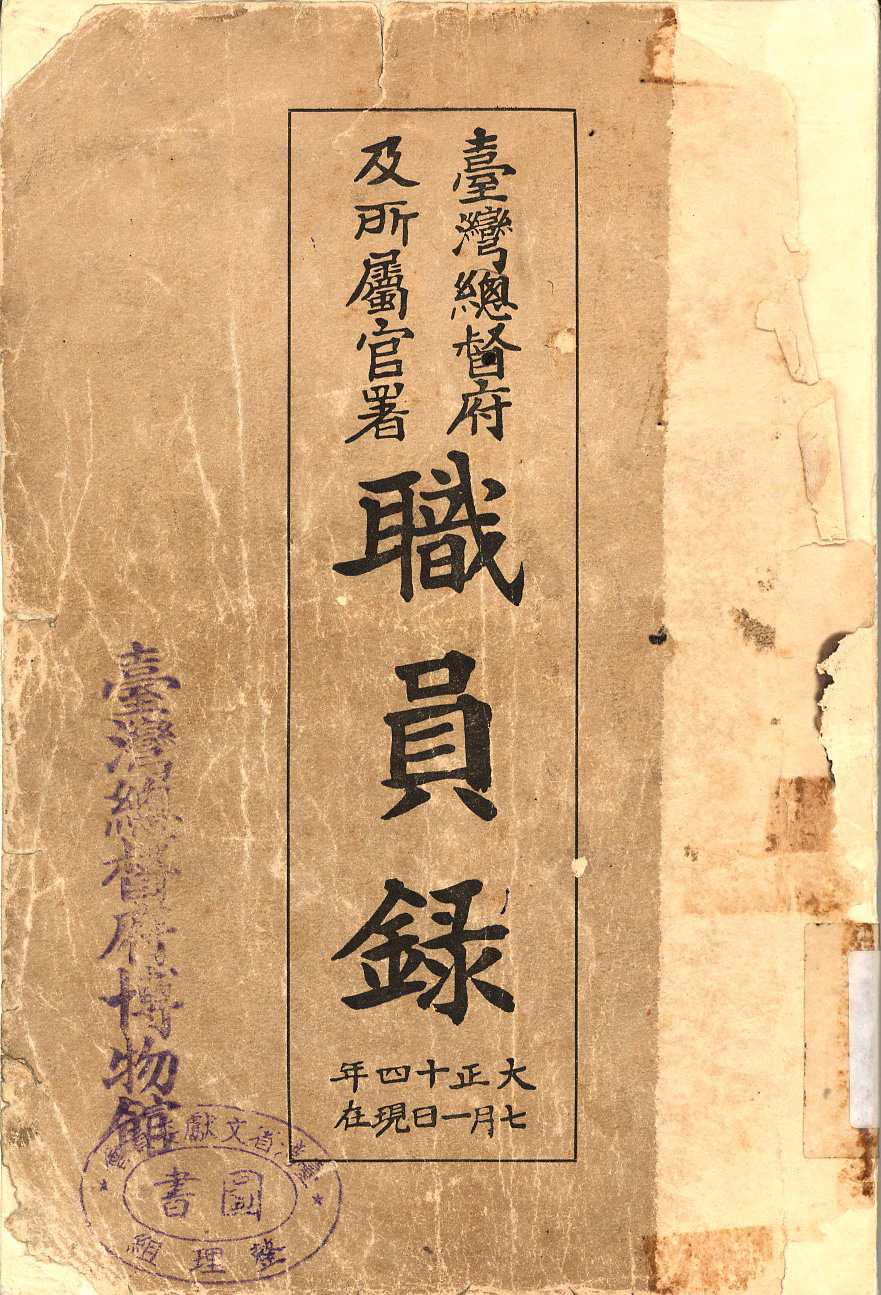 臺灣總督府
及所屬官署
職員録
大正十四年
七月一日現在
臺灣總督府博物館
臺灣省文獻委員會
圖書
整理組